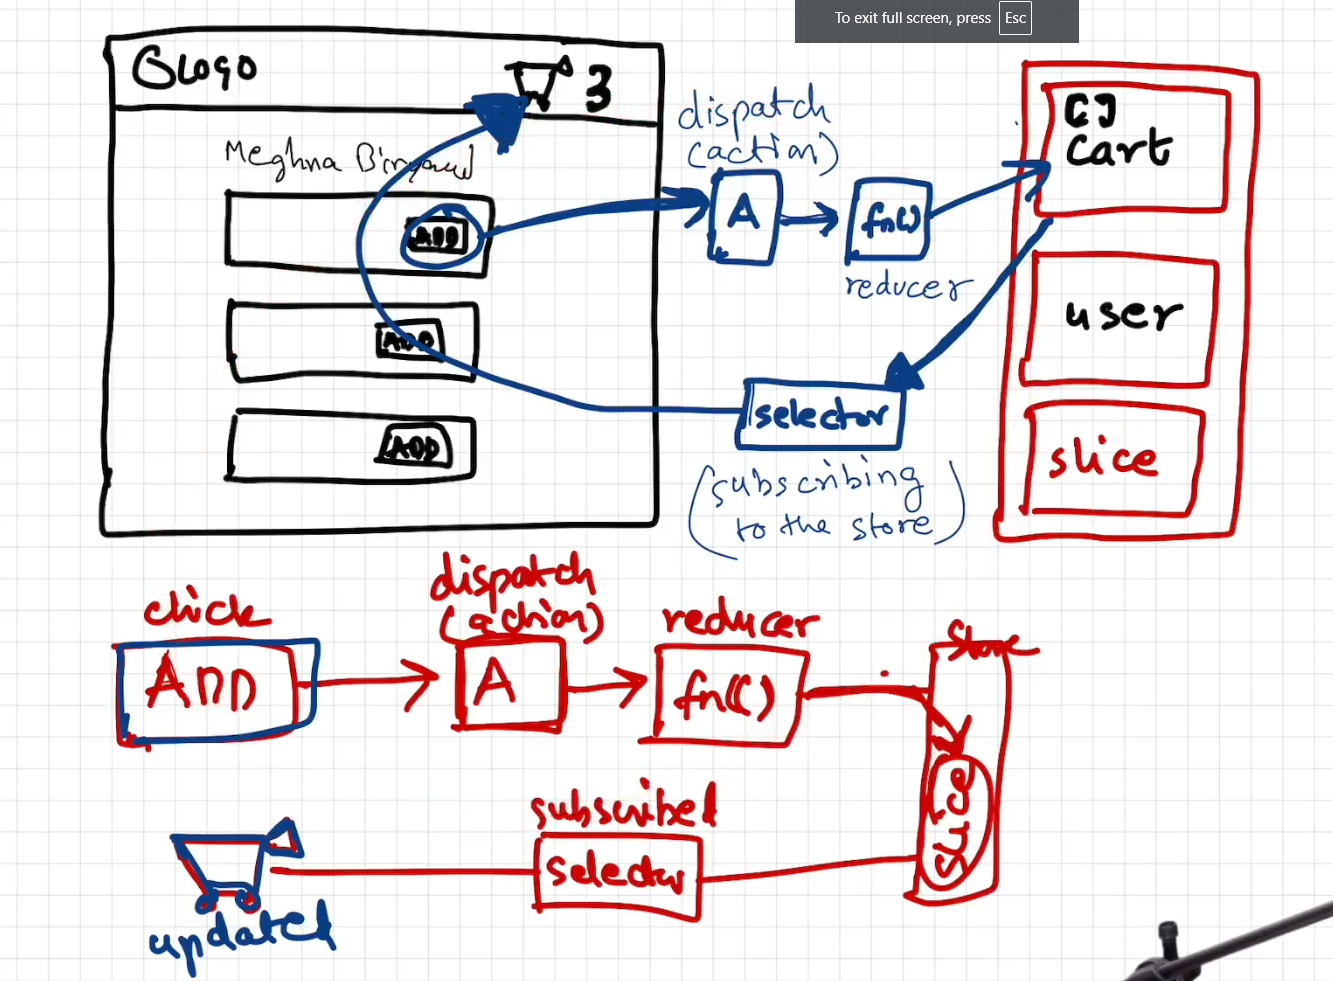 To exit full screen, press Esc
Logo
3
Meghna
ADD
ADD
ADD
dispatch
(action)
A
fn()
reducer
[]
Cart
user
slice
selector
(subscribing
to the store)
click
ADD
dispatch
(action)
A
reducer
fn()
Store
slice
subscribed
selector
updated